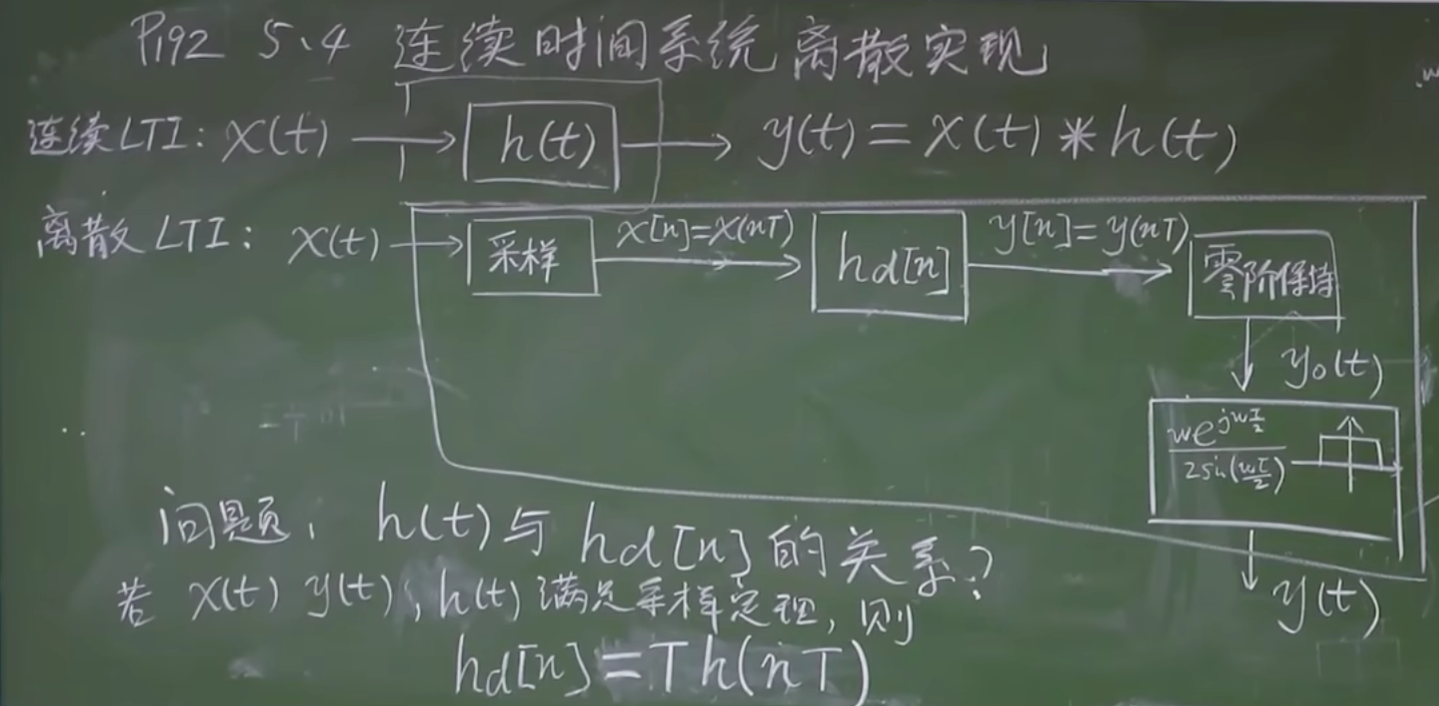 P192 5.4 连续时间系统离散实现
连续LTI: x(t) h(t) y(t)=x(t)*h(t)
离散LTI: x(t) 采样 x[n]=x(nT) hd[n] y[n]=y(nT) 零阶保持
y₀(t)
we^{jwT/2}/2sin(wT/2)
y(t)
问题, h(t)与hd[n]的关系?
若 x(t) y(t), h(t) 满足采样定理, 则
hd[n]=Th(nT)